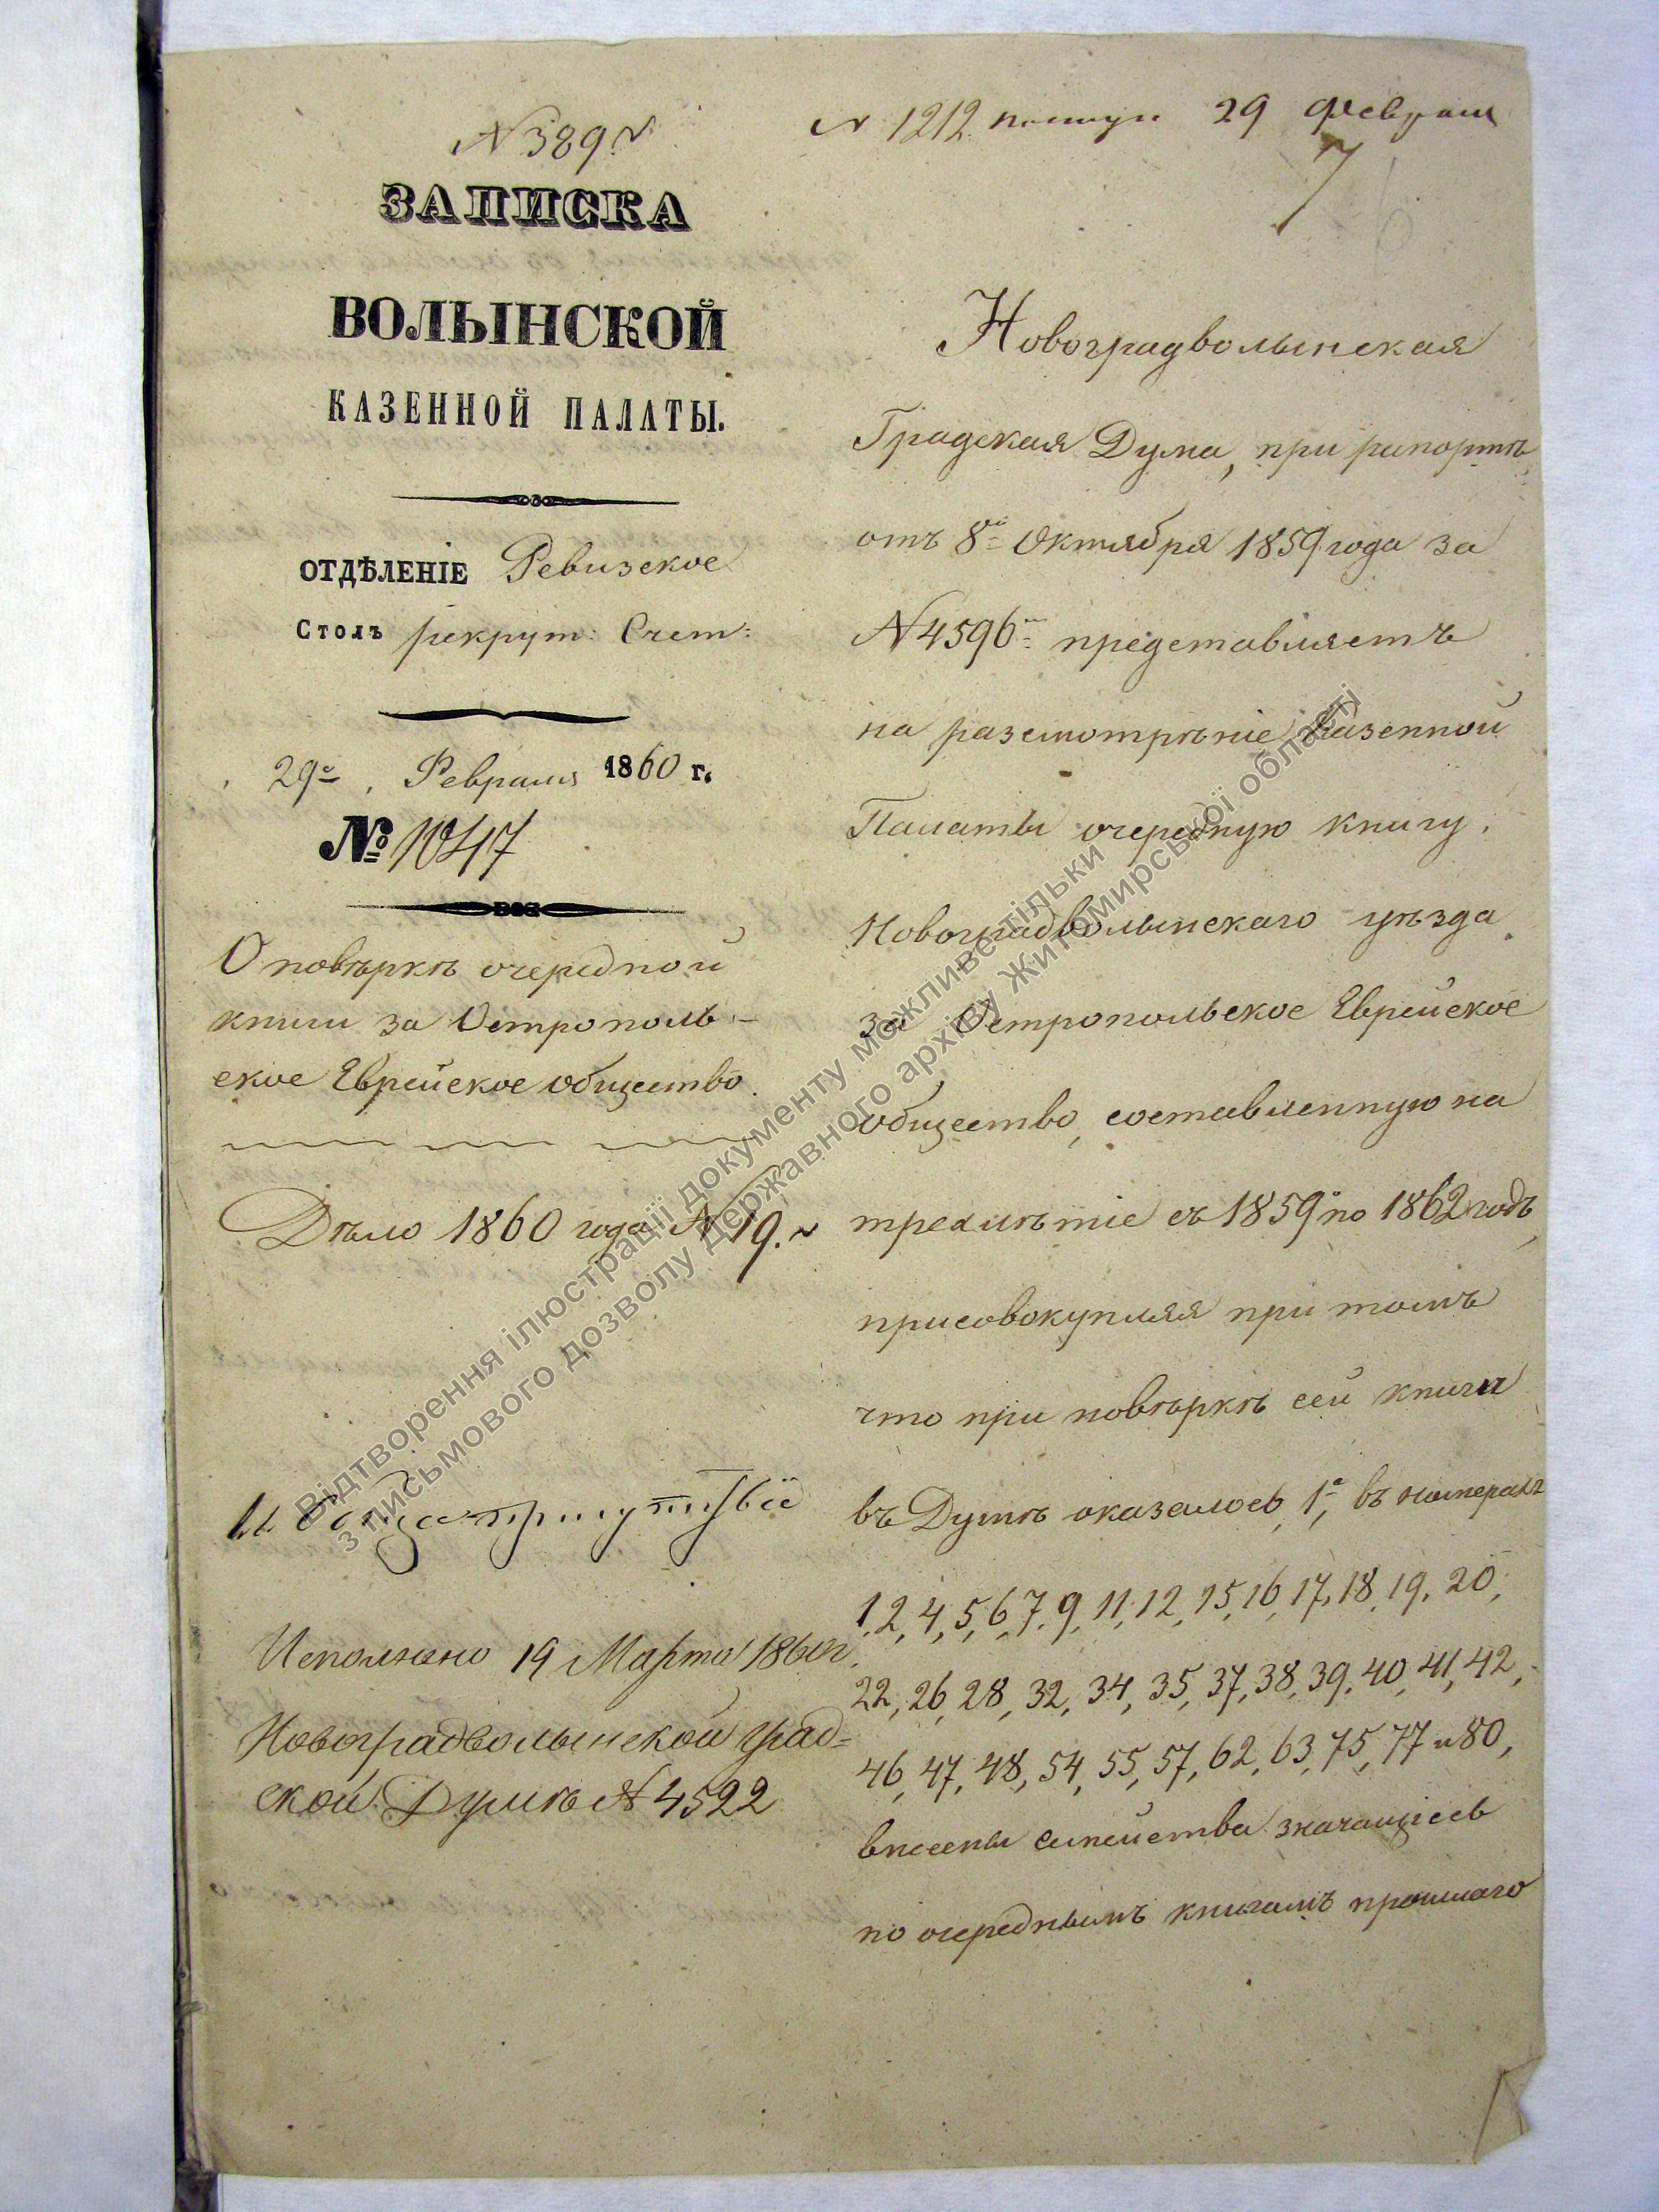 № 389.
№ 1212 29 февраля
7
ЗАПИСКА
ВОЛЫНСКОЙ
КАЗЕННОЙ ПАЛАТЫ.
ОТДѢЛЕНІЕ Ревизское
Столъ рекрут: Счет:
29го Февраля 1860 г.
№ 1047
О повѣркѣ очередной
книги за Острополь-
ское Еврейское общество.
Дѣло 1860 года № 19.
Исполнено 19 Марта 1860 г.
Новоградволынской Град-
ской Думѣ № 4522
Новоградволынская
Градская Дума, при рапортѣ
отъ 8го Октября 1859 года за
№ 4596 представляетъ
на разсмотрѣніе Казенной
Палаты очередную книгу,
Новоградволынскаго уѣзда
за Остропольское Еврейское
общество, составленную на
трехлѣтіе съ 1859 по 1862 годъ,
присовокупляя при томъ
что при повѣркѣ сей книги
въ Думѣ оказалось, 1е, въ номерахъ
1, 2, 4, 5, 6, 7, 9, 11, 12, 15, 16, 17, 18, 19, 20,
22, 26, 28, 32, 34, 35, 37, 38, 39, 40, 41, 42,
46, 47, 48, 54, 55, 57, 62, 63, 75, 77 и 80,
внесены семейства значащіесь
по очереднымъ книгамъ прошлаго
Відтворення ілюстрації документу можливе тільки
з письмового дозволу Державного архіву Житомирської області